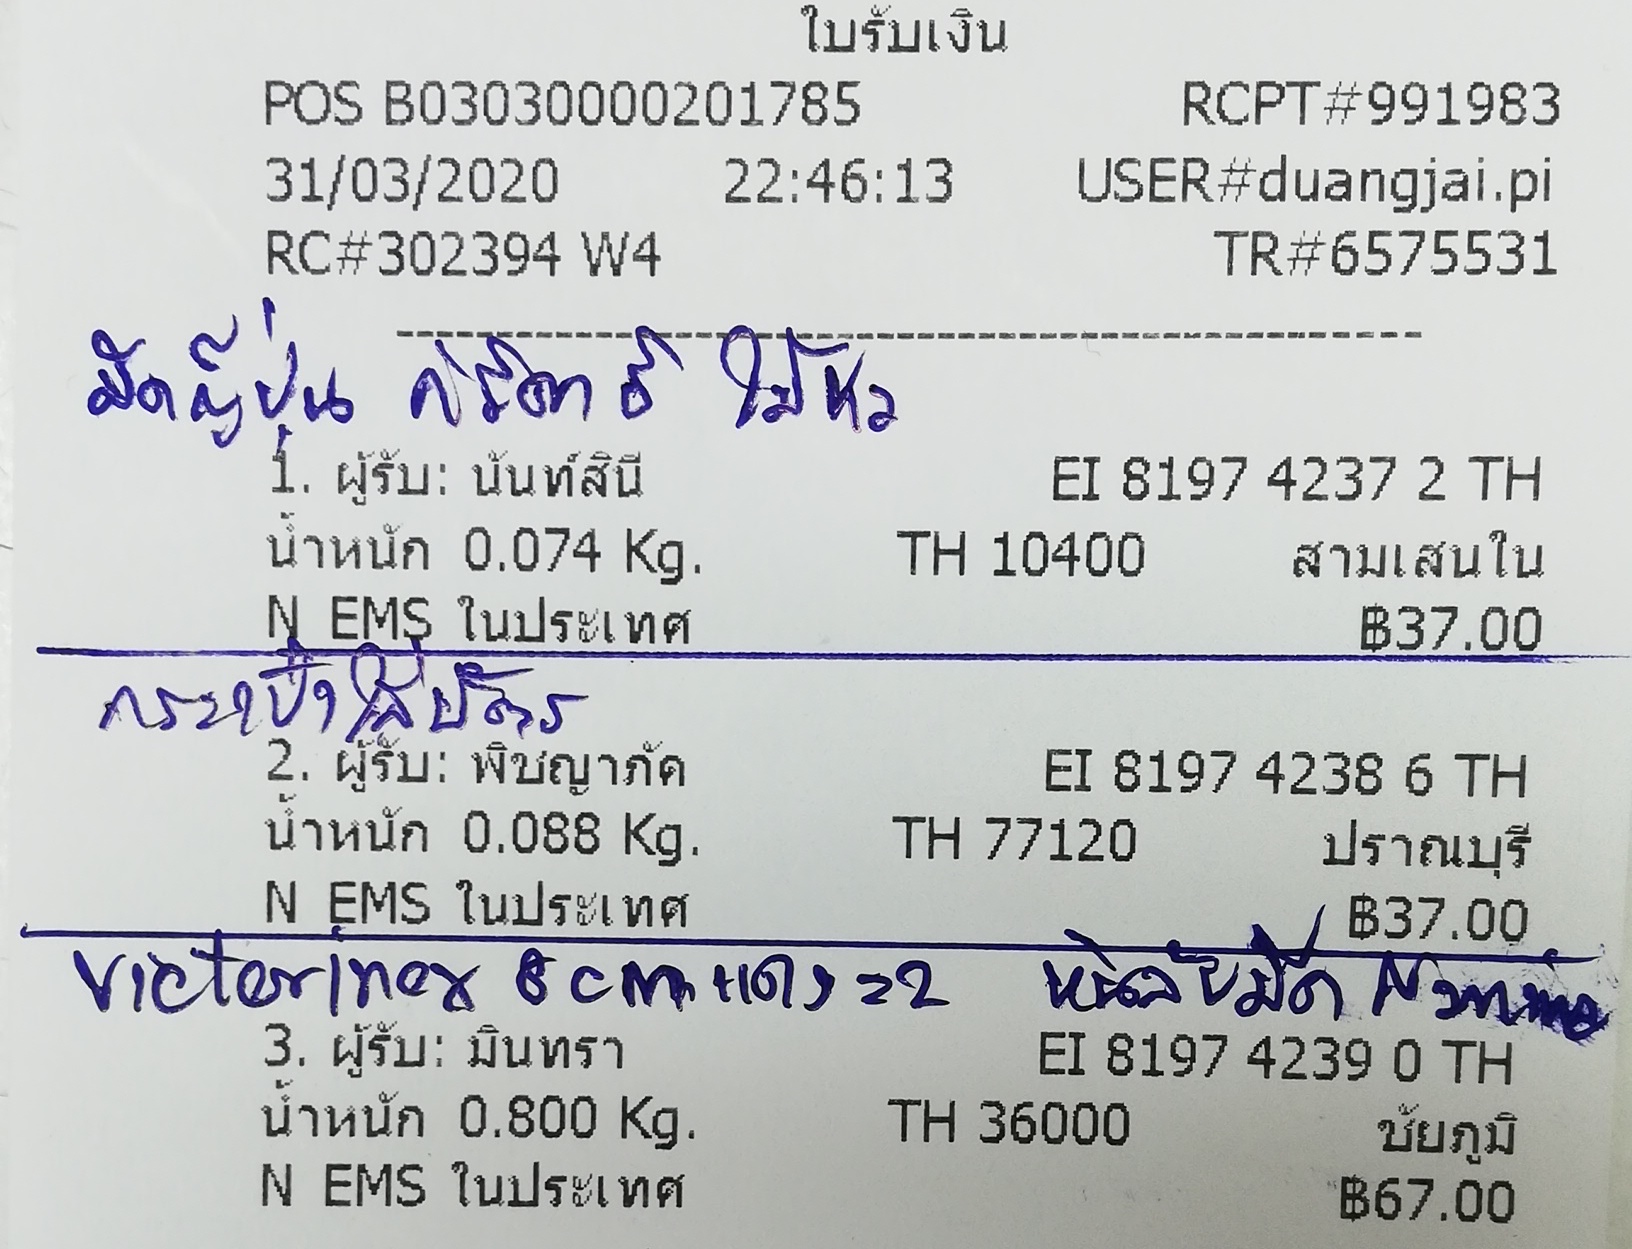 ใบรับเงิน
POS B03030000201785 RCPT#991983
31/03/2020 22:46:13 USER#duangjai.pi
RC#302394 W4 TR#6575531
มีดญี่ปุ่น
1. ผู้รับ: นันท์สินี EI 8197 4237 2 TH
น้ำหนัก 0.074 Kg. TH 10400 สามเสนใน
N EMS ในประเทศ ฿37.00
กระเป๋าใส่บัตร
2. ผู้รับ: พิชญาภัค EI 8197 4238 6 TH
น้ำหนัก 0.088 Kg. TH 77120 ปราณบุรี
N EMS ในประเทศ ฿37.00
Victorinox 8 cm แดง =2 หินลับมีด
3. ผู้รับ: มินทรา EI 8197 4239 0 TH
น้ำหนัก 0.800 Kg. TH 36000 ชัยภูมิ
N EMS ในประเทศ ฿67.00